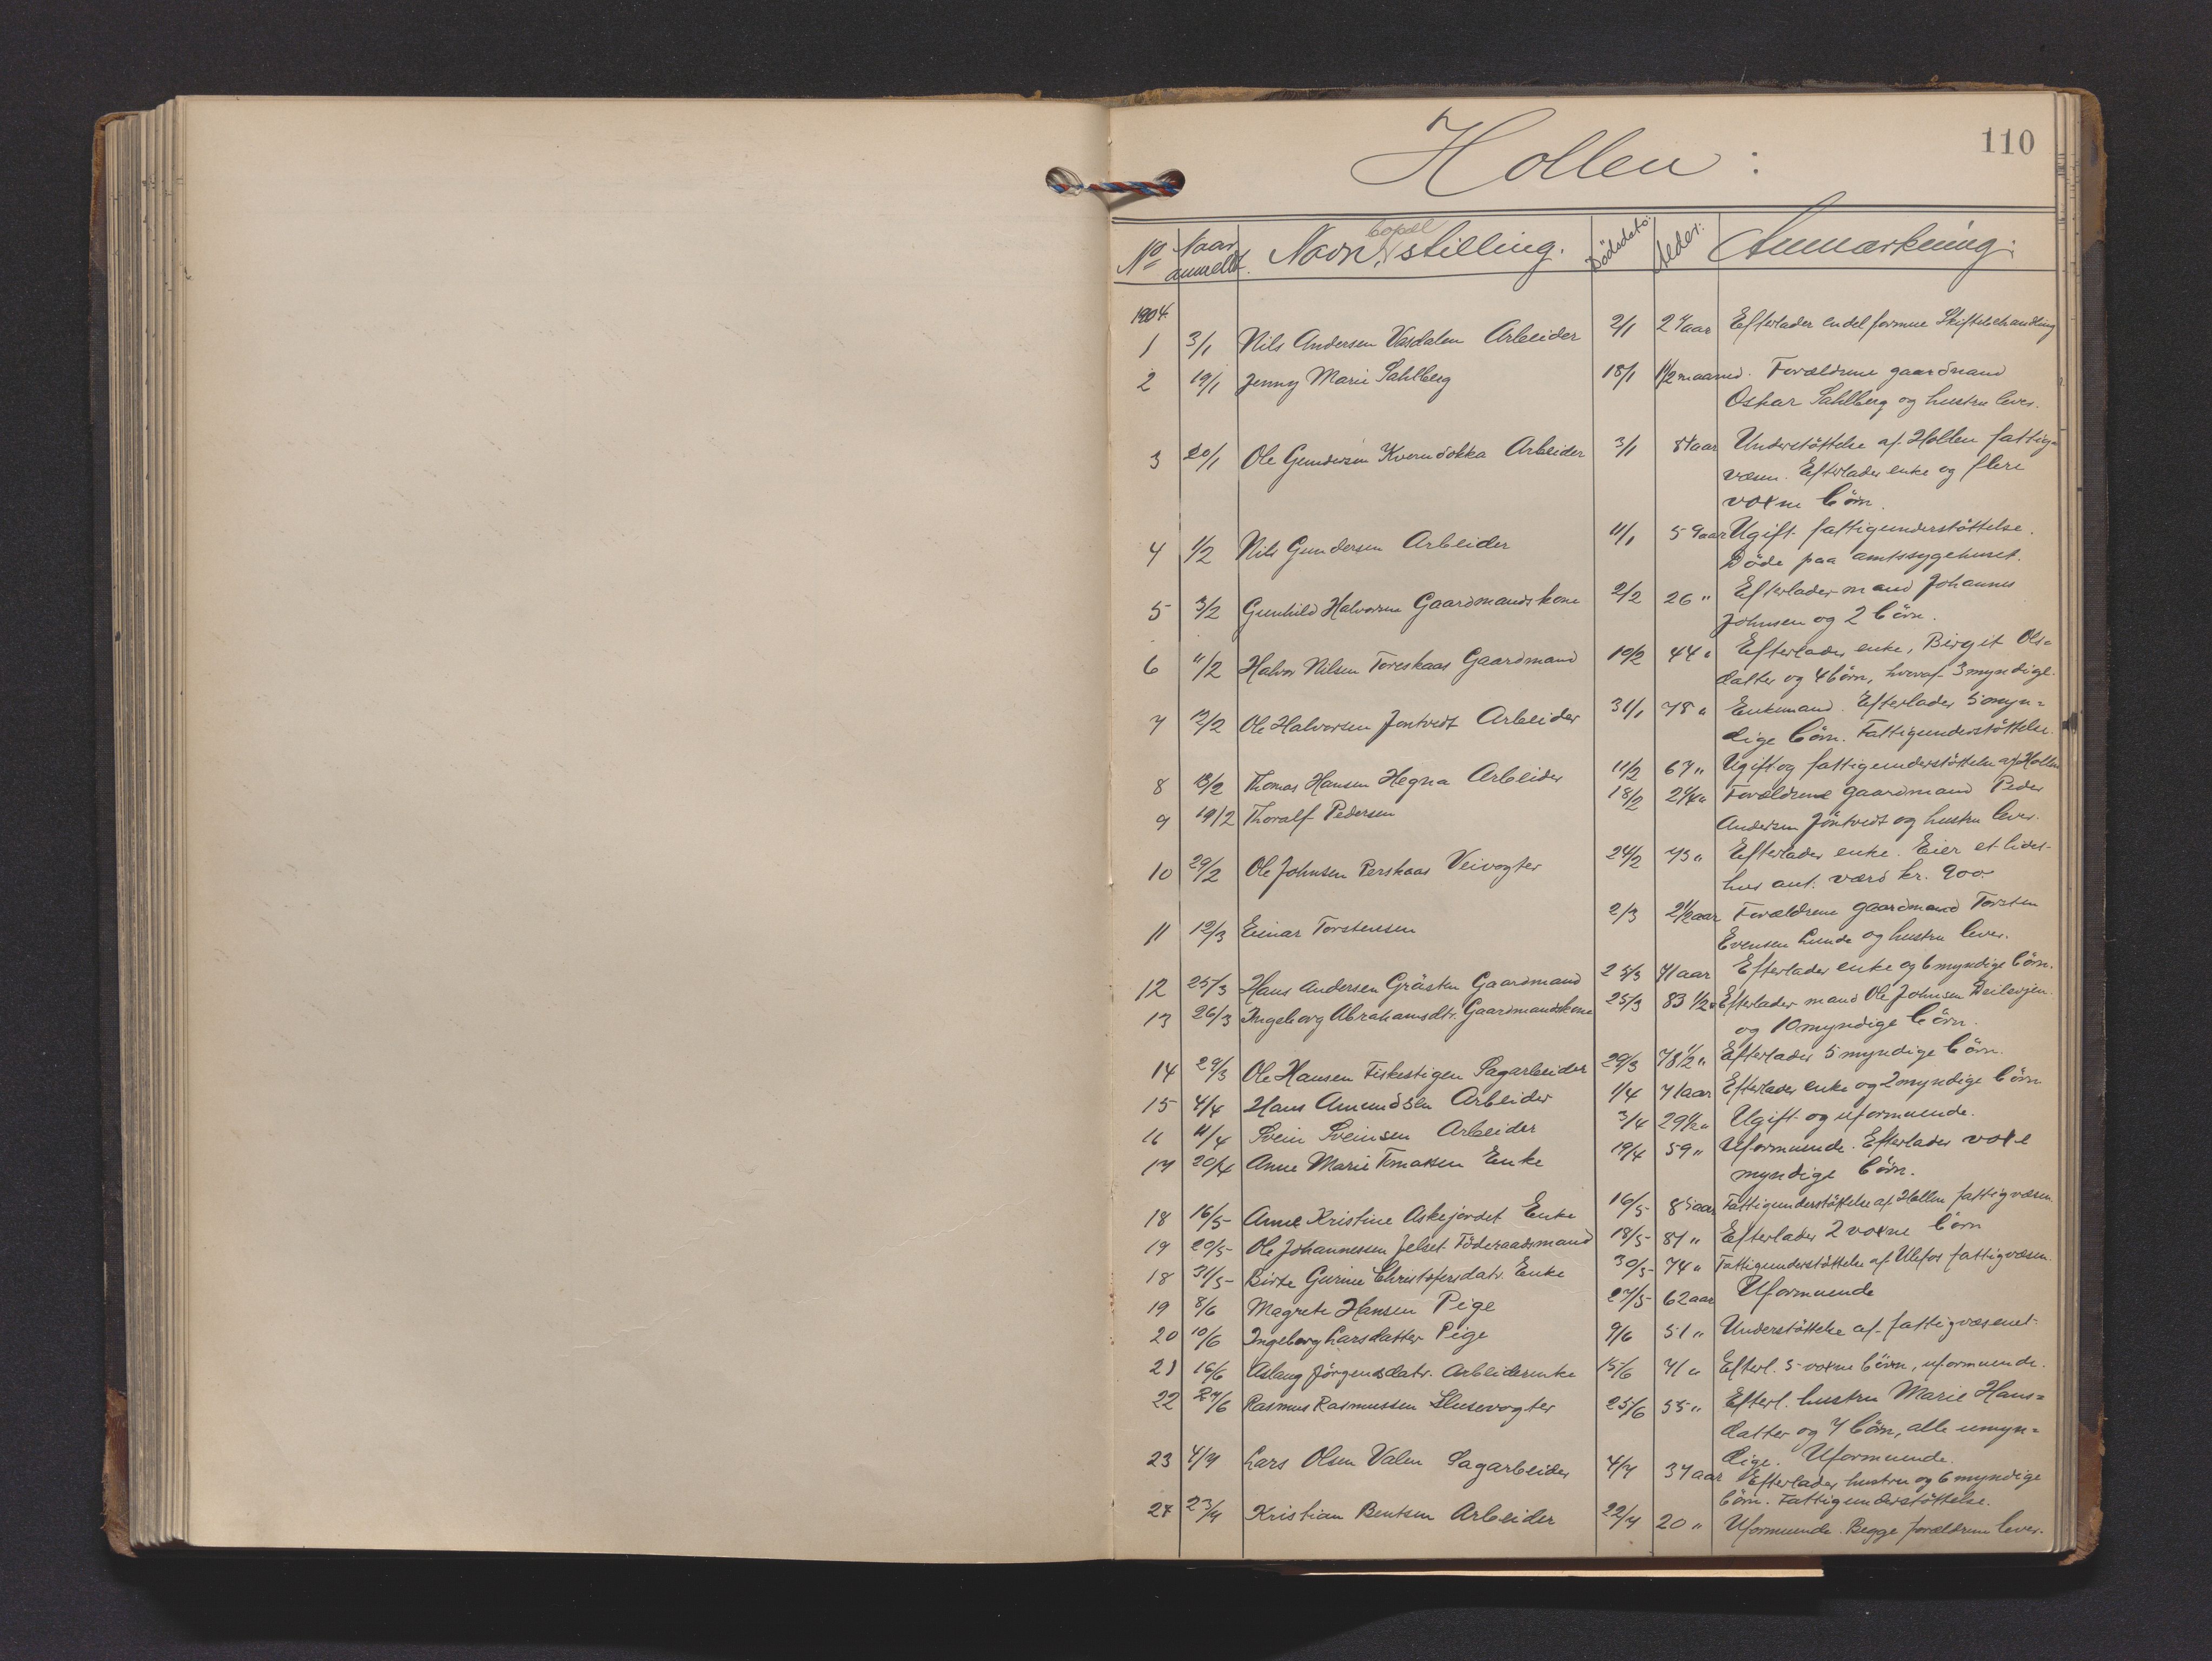 110
Hollen:
No Naar anmeldt. Navn, bopæl stilling. Dödsdato: Alder: Anmærkning:
1904.
1 3/1 Nils Andersen Vasdalen Arbeider 2/1 27 aar Efterlader endel formue Skiftebehandling
2 19/1 Jenny Marie Sahlberg 18/1 1 1/2 maaned. Forældrene gaardmand
Oskar Sahlberg og hustru lever.
3 20/1 Ole Gundersen Kverndokka Arbeider 3/1 87 aar Understöttelse af Hollen fattig=
væsen. Efterlader enke og flere
voxne börn.
4 1/2 Nils Gundersen Arbeider 11/1 59 aar Ugift fattigunderstöttelse.
Döde paa amtssygehuset.
5 3/2 Gunhild Halvorsen Gaardmandskone 2/2 26 " Efterlader mand Johannes
Johnsen og 2 börn.
6 11/2 Halvor Nilsen Toreskaas Gaardmand 10/2 44 " Efterlader enke, Birgit Ols=
datter og 4 börn, hvoraf 3 myndige.
7 12/2 Ole Halvorsen Jontvedt Arbeider 31/1 78 " Enkemand. Efterlader 5 myn=
dige börn. Fattigunderstöttelse.
8 13/2 Thomas Hansen Hegna Arbeider 11/2 67 " Ugift og fattigunderstöttelse af Hollen
9 19/2 Thoralf Pedersen 18/2 2 1/4 " Forældrene gaardmand Peder
Andersen Jöntvedt og hustru lever.
10 29/2 Ole Johnsen Perskaas Veivogter 24/2 73 " Efterlader enke. Eier et lidet
hus ant. værd kr. 900
11 12/3 Einar Torstensen 2/3 2 1/2 aar Forældrene gaardmand Torsten
Evensen Lunde og hustru lever.
12 25/3 Hans Andersen Gråsten Gaardmand 25/3 71 aar Efterlader enke og 6 myndige börn.
13 26/3 Ingeborg Abrahamsdtr. Gaardmandskone 25/3 83 1/2 " Efterlader mand Ole Johnsen
og 10 myndige börn.
14 29/3 Ole Hansen Fiskestigen Sagarbeider 29/3 78 1/2 " Efterlader 5 myndige börn.
15 4/4 Hans Amundsen Arbeider 1/4 71 aar Efterlader enke og 2 myndige börn
16 11/4 Svein Sveinsen Arbeider 3/4 29 1/2 " Ugift og uformuende.
17 20/4 Anne Marie Enke 19/4 59 " Uformuende. Efterlader voxe
myndige börn.
18 16/5 Anne Kristine Askejordet Enke 16/5 85 aar Fattigunderstöttelse af Hollen fattigvæsen.
19 20/5 Ole Johannessen Jelset Föderaadsmand 18/5 87 " Efterlader 2 voxne börn
18 31/5 Birte Gurine Christofersdatr. Enke 30/5 74 " Fattigunderstöttelse af Ulefos fattigvæsen.
19 8/6 Magrete Hansen Pige 27/5 62 aar Uformuende
20 10/6 Ingeborg Larsdatter Pige 9/6 51 " Understöttelse af fattigvæsenet.
21 16/6 Aslaug Jörgensdatr. Arbeiderenke 15/6 71 " Efterl. 5 voxne börn, uformuende.
22 27/6 Rasmus Rasmussen Slusevogter 25/6 55 " Efterl. hustru Marie Hans=
datter og 7 börn, alle umyn=
dige. Uformuende.
23 4/7 Lars Olsen Valen Sagarbeider 4/7 37 aar Efterlader hustru og 6 myndige
börn. Fattigunderstöttelse.
24 23/7 Kristian Bentsen Arbeider 22/7 20 " Uformuende. Begge forældrene lever.